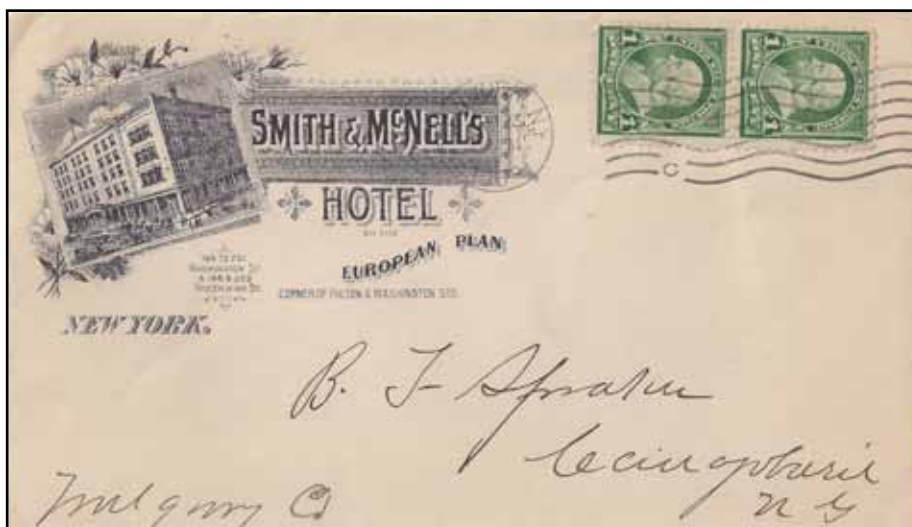 SMITH & McNELL'S
HOTEL
ON THE
EUROPEAN PLAN
WASHINGTON ST.
CORNER OF FULTON & WASHINGTON STS.
NEW YORK.
C
B. F Spraker
Canajoharie
N Y
Montgomery Co